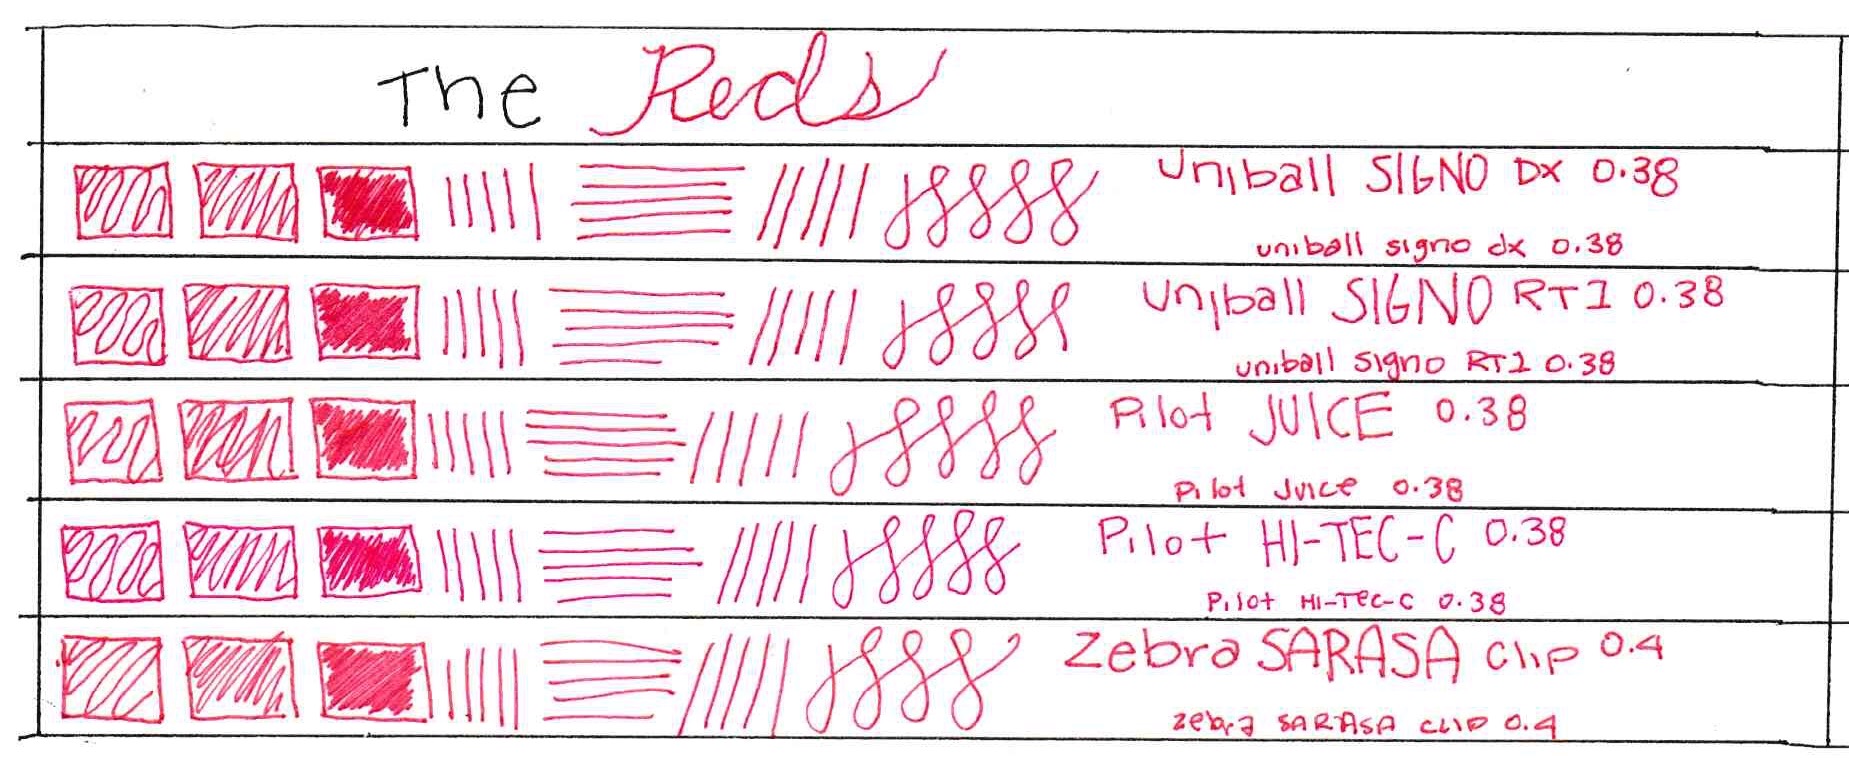 The Reds
uniball SIGNO DX 0.38
uniball signo dx 0.38
uniball SIGNO RT1 0.38
uniball signo RT1 0.38
Pilot JUICE 0.38
Pilot Juice 0.38
Pilot HI-TEC-C 0.38
Pilot HI-TEC-C 0.38
Zebra SARASA Clip 0.4
zebra SARASA CLIP 0.4